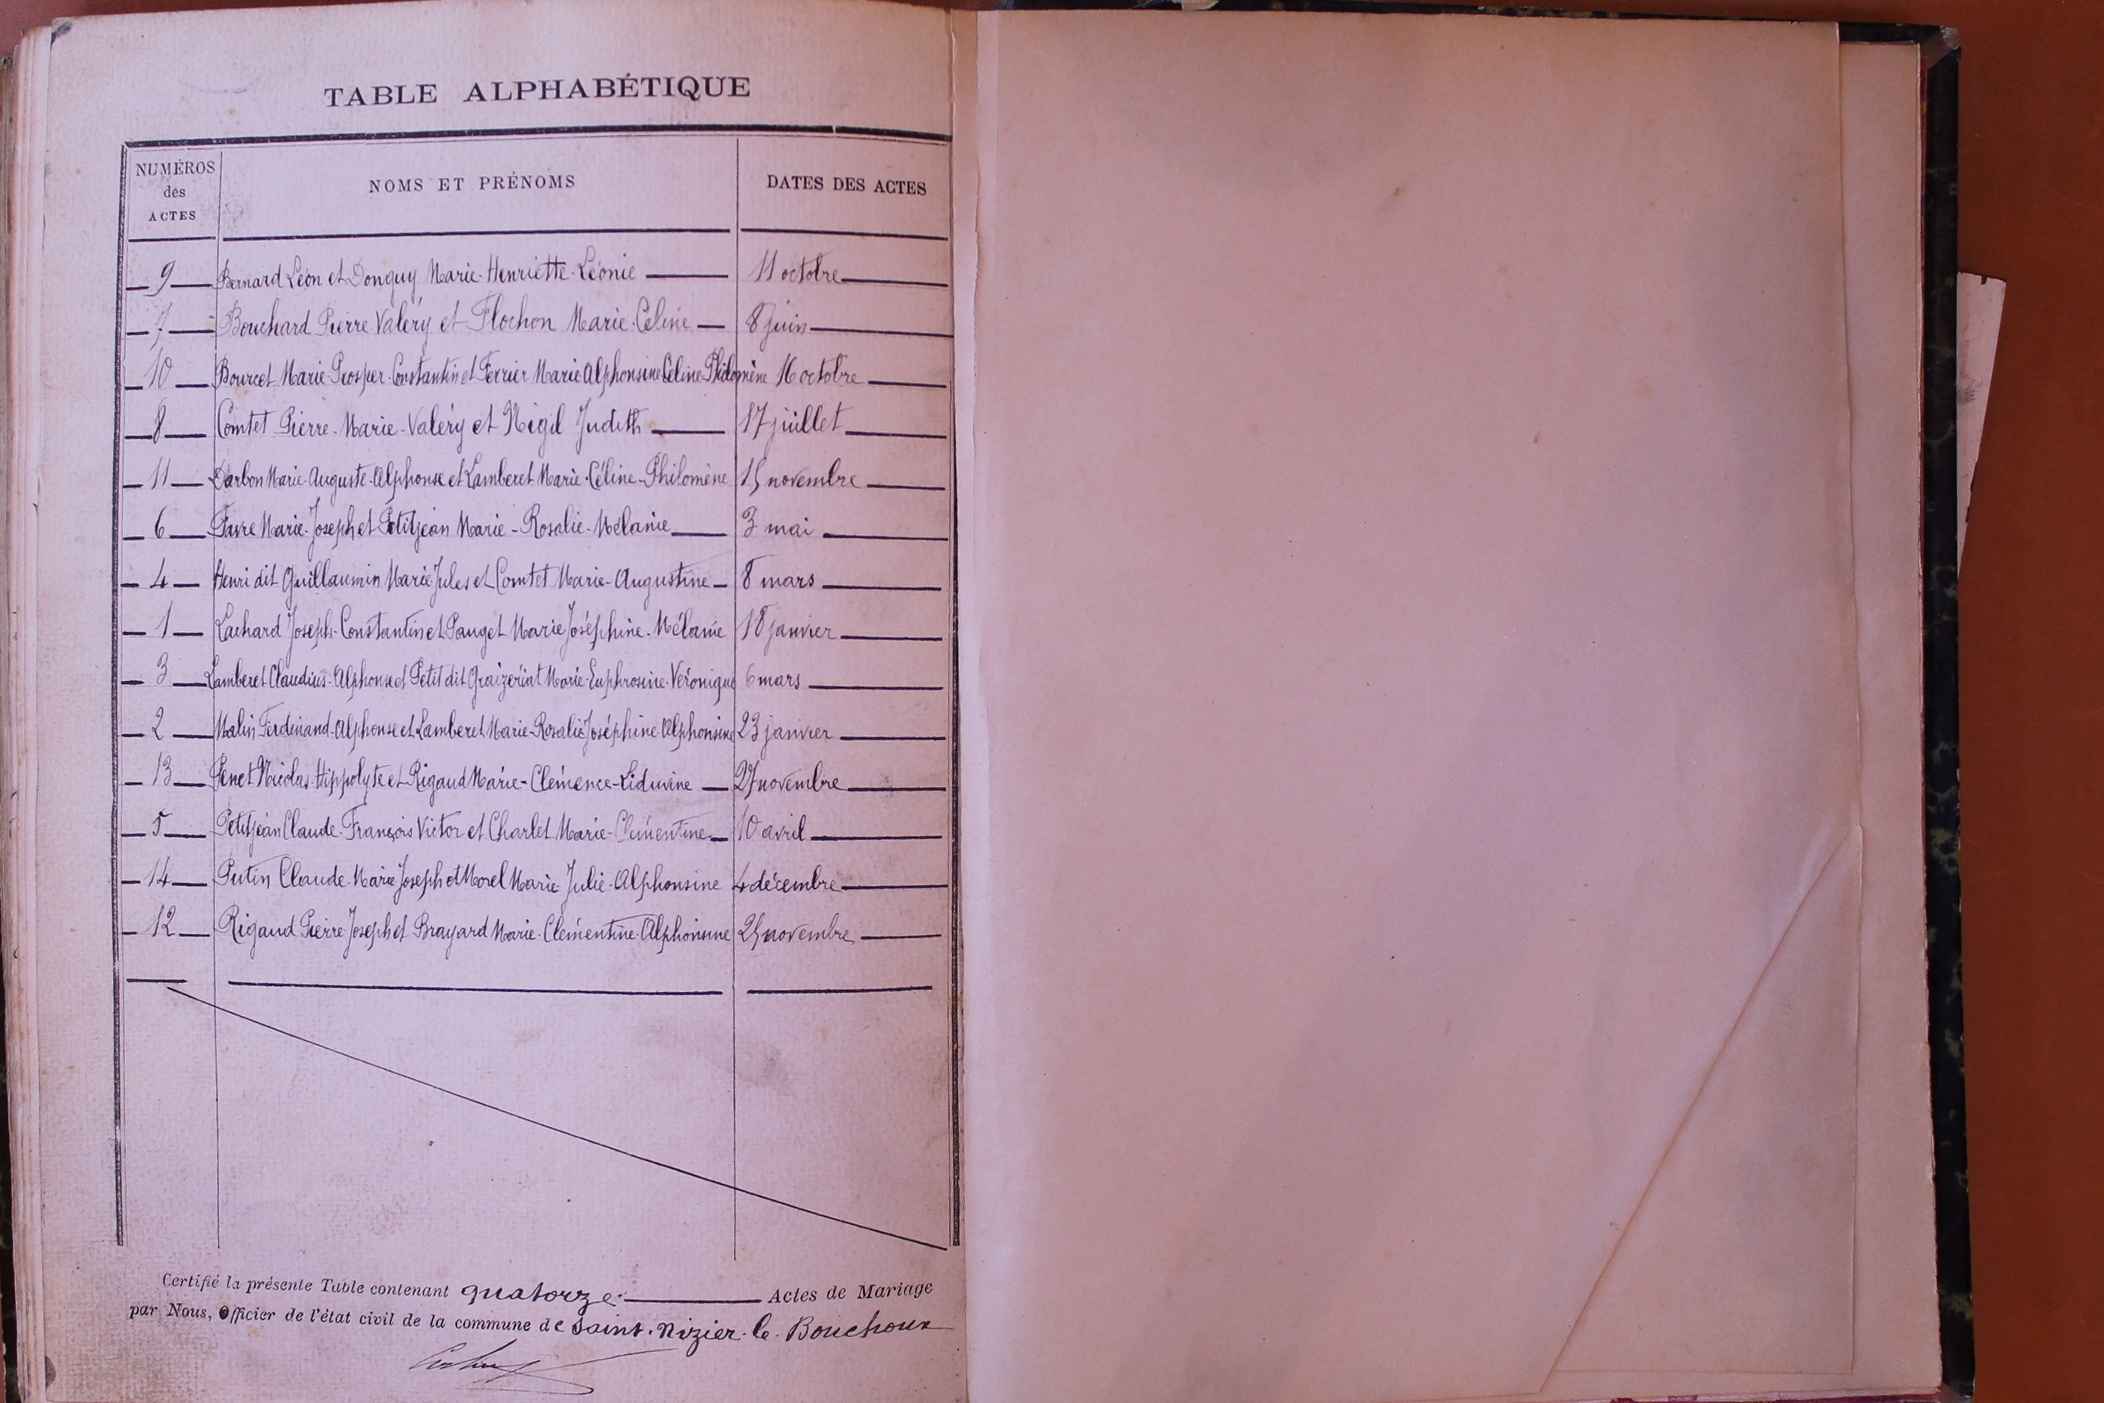 TABLE ALPHABÉTIQUE
NUMÉROS des ACTES NOMS ET PRÉNOMS DATES DES ACTES
9 Bernard Léon et Donguy Marie-Henriette-Léonie 11 octobre
7 Bouchard Pierre Valéry et Flochon Marie-Céline 8 juin
10 Bourcet Marie-Prosper-Constantin et Ferrier Marie Alphonsine Céline-Philomène 16 octobre
8 Comtet Pierre-Marie-Valéry et Nigil Judith 17 juillet
11 Darbon Marie-Auguste-Alphonse et Lamberet Marie-Céline-Philomène 15 novembre
6 Favre Marie-Joseph et Petitjean Marie-Rosalie-Mélanie 3 mai
4 Henri dit Guillaumin Marie Jules et Comtet Marie-Augustine 8 mars
1 Lachard Joseph-Constantin et Pauget Marie Joséphine-Mélanie 18 janvier
3 Lamberet Claudius-Alphonse et Petit dit Graizeriat Marie-Euphrosine-Véronique 6 mars
2 Malin Ferdinand-Alphonse et Lamberet Marie-Rosalie Joséphine Alphonsine 23 janvier
13 Penet Nicolas-Hippolyte et Rigaud Marie-Clémence-Liduvine 27 novembre
5 Petitjean Claude-François Victor et Charlet Marie-Clémentine 10 avril
14 Putin Claude-Marie Joseph et Morel Marie Julie-Alphonsine 4 décembre
12 Rigaud Pierre Joseph et Brayard Marie-Clémentine-Alphonsine 25 novembre
Certifié la présente Table contenant quatorze Actes de Mariage
par Nous, Officier de l'état civil de la commune de Saint-Nizier-le-Bouchoux